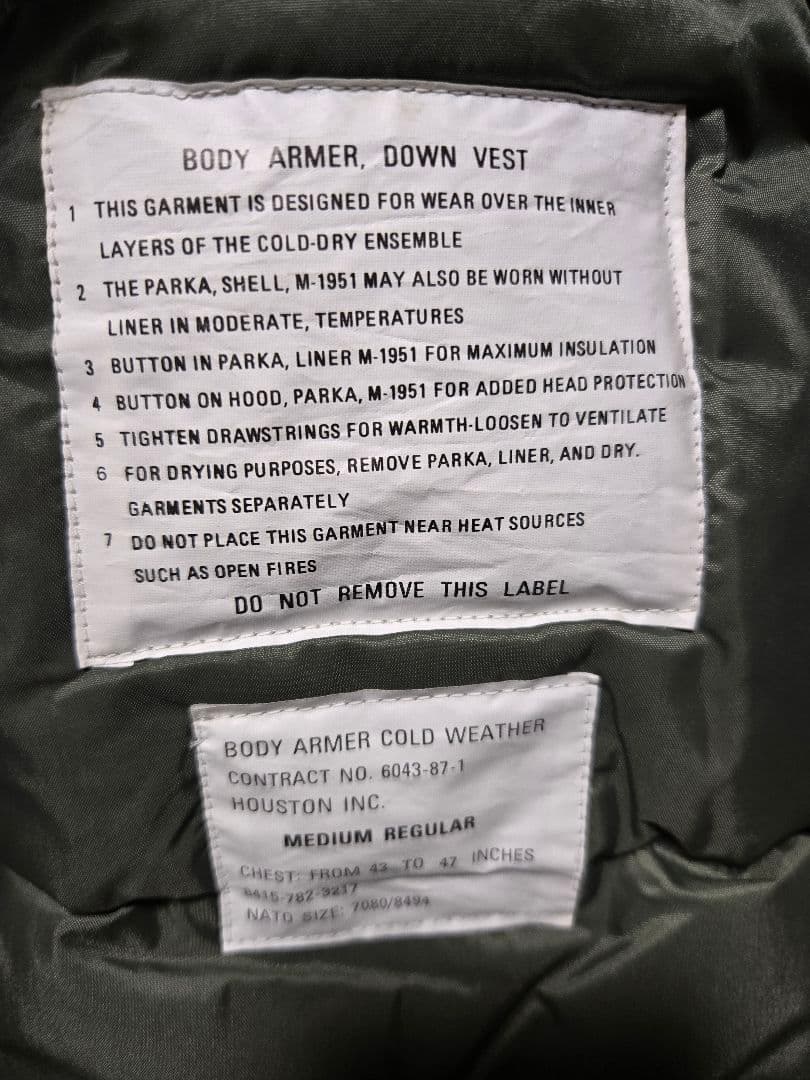 BODY ARMER, DOWN VEST
1 THIS GARMENT IS DESIGNED FOR WEAR OVER THE INNER
LAYERS OF THE COLD-DRY ENSEMBLE
2 THE PARKA, SHELL, M-1951 MAY ALSO BE WORN WITHOUT
LINER IN MODERATE, TEMPERATURES
3 BUTTON IN PARKA, LINER M-1951 FOR MAXIMUM INSULATION
4 BUTTON ON HOOD, PARKA, M-1951 FOR ADDED HEAD PROTECTION
5 TIGHTEN DRAWSTRINGS FOR WARMTH-LOOSEN TO VENTILATE
6 FOR DRYING PURPOSES, REMOVE PARKA, LINER, AND DRY.
GARMENTS SEPARATELY
7 DO NOT PLACE THIS GARMENT NEAR HEAT SOURCES
SUCH AS OPEN FIRES
DO NOT REMOVE THIS LABEL
BODY ARMER COLD WEATHER
CONTRACT NO. 6043-87-1
HOUSTON INC.
MEDIUM REGULAR
CHEST: FROM 43 TO 47 INCHES
8415-782-3217
NATO SIZE: 7080/8494